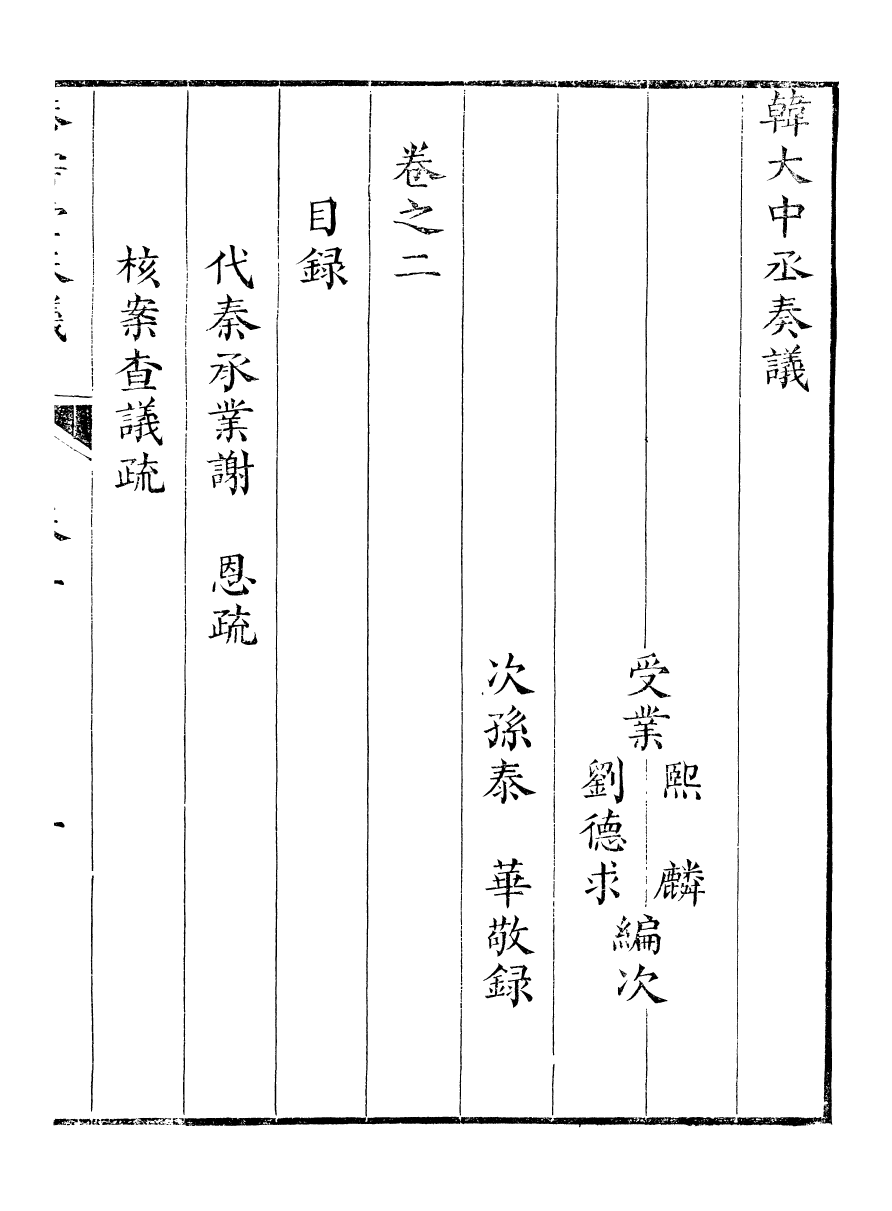 韓大中丞奏議
受業 熙 麟 編次
劉德求
次孫泰 華敬録
卷之二
目録
代秦承業謝 恩疏
核案查議疏